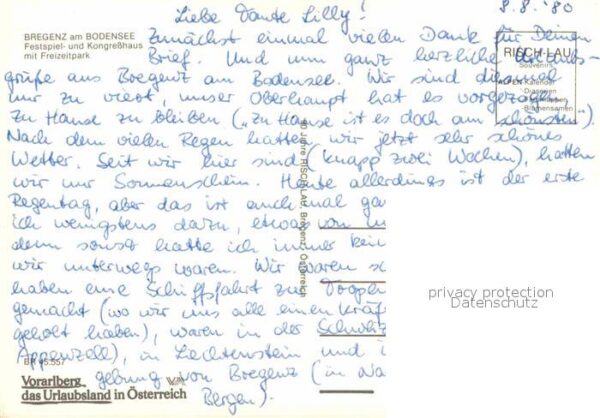 Liebe Tante Lilly!
8.8.'80
BREGENZ am BODENSEE
Festspiel- und Kongreßhaus
mit Freizeitpark
RISCH-LAU
Souvenirs
Zunächst einmal vielen Dank für Deinen
Brief. Und nun ganz herzliche Urlaubs-
grüße aus Bregenz am Bodensee. Wir sind diesmal
nur zu viert, unser Oberhaupt hat es vorgezogen,
zu Hause zu bleiben („Zu Hause ist es doch am schönsten").
Nach dem vielen Regen hatten wir jetzt sehr schönes
Wetter. Seit wir hier sind (knapp zwei Wochen), hatten
wir nur Sonnenschein. Heute allerdings ist der erste
Regentag, aber das ist auch mal
ich wenigstens dazu, etwas von
denn sonst hatte ich immer
wir unterwegs waren. Wir waren
haben eine Schiffsfahrt zur
gemacht (wo wir uns alle einen
geholt haben), waren in der
Appenzell), in Liechtenstein und
gebung von Bregenz (in
Bergen).
30 Jahre RISCH-LAU, Bregenz, Österreich
BR 45.557
Vorarlberg
das Urlaubsland in Österreich
privacy protection
Datenschutz